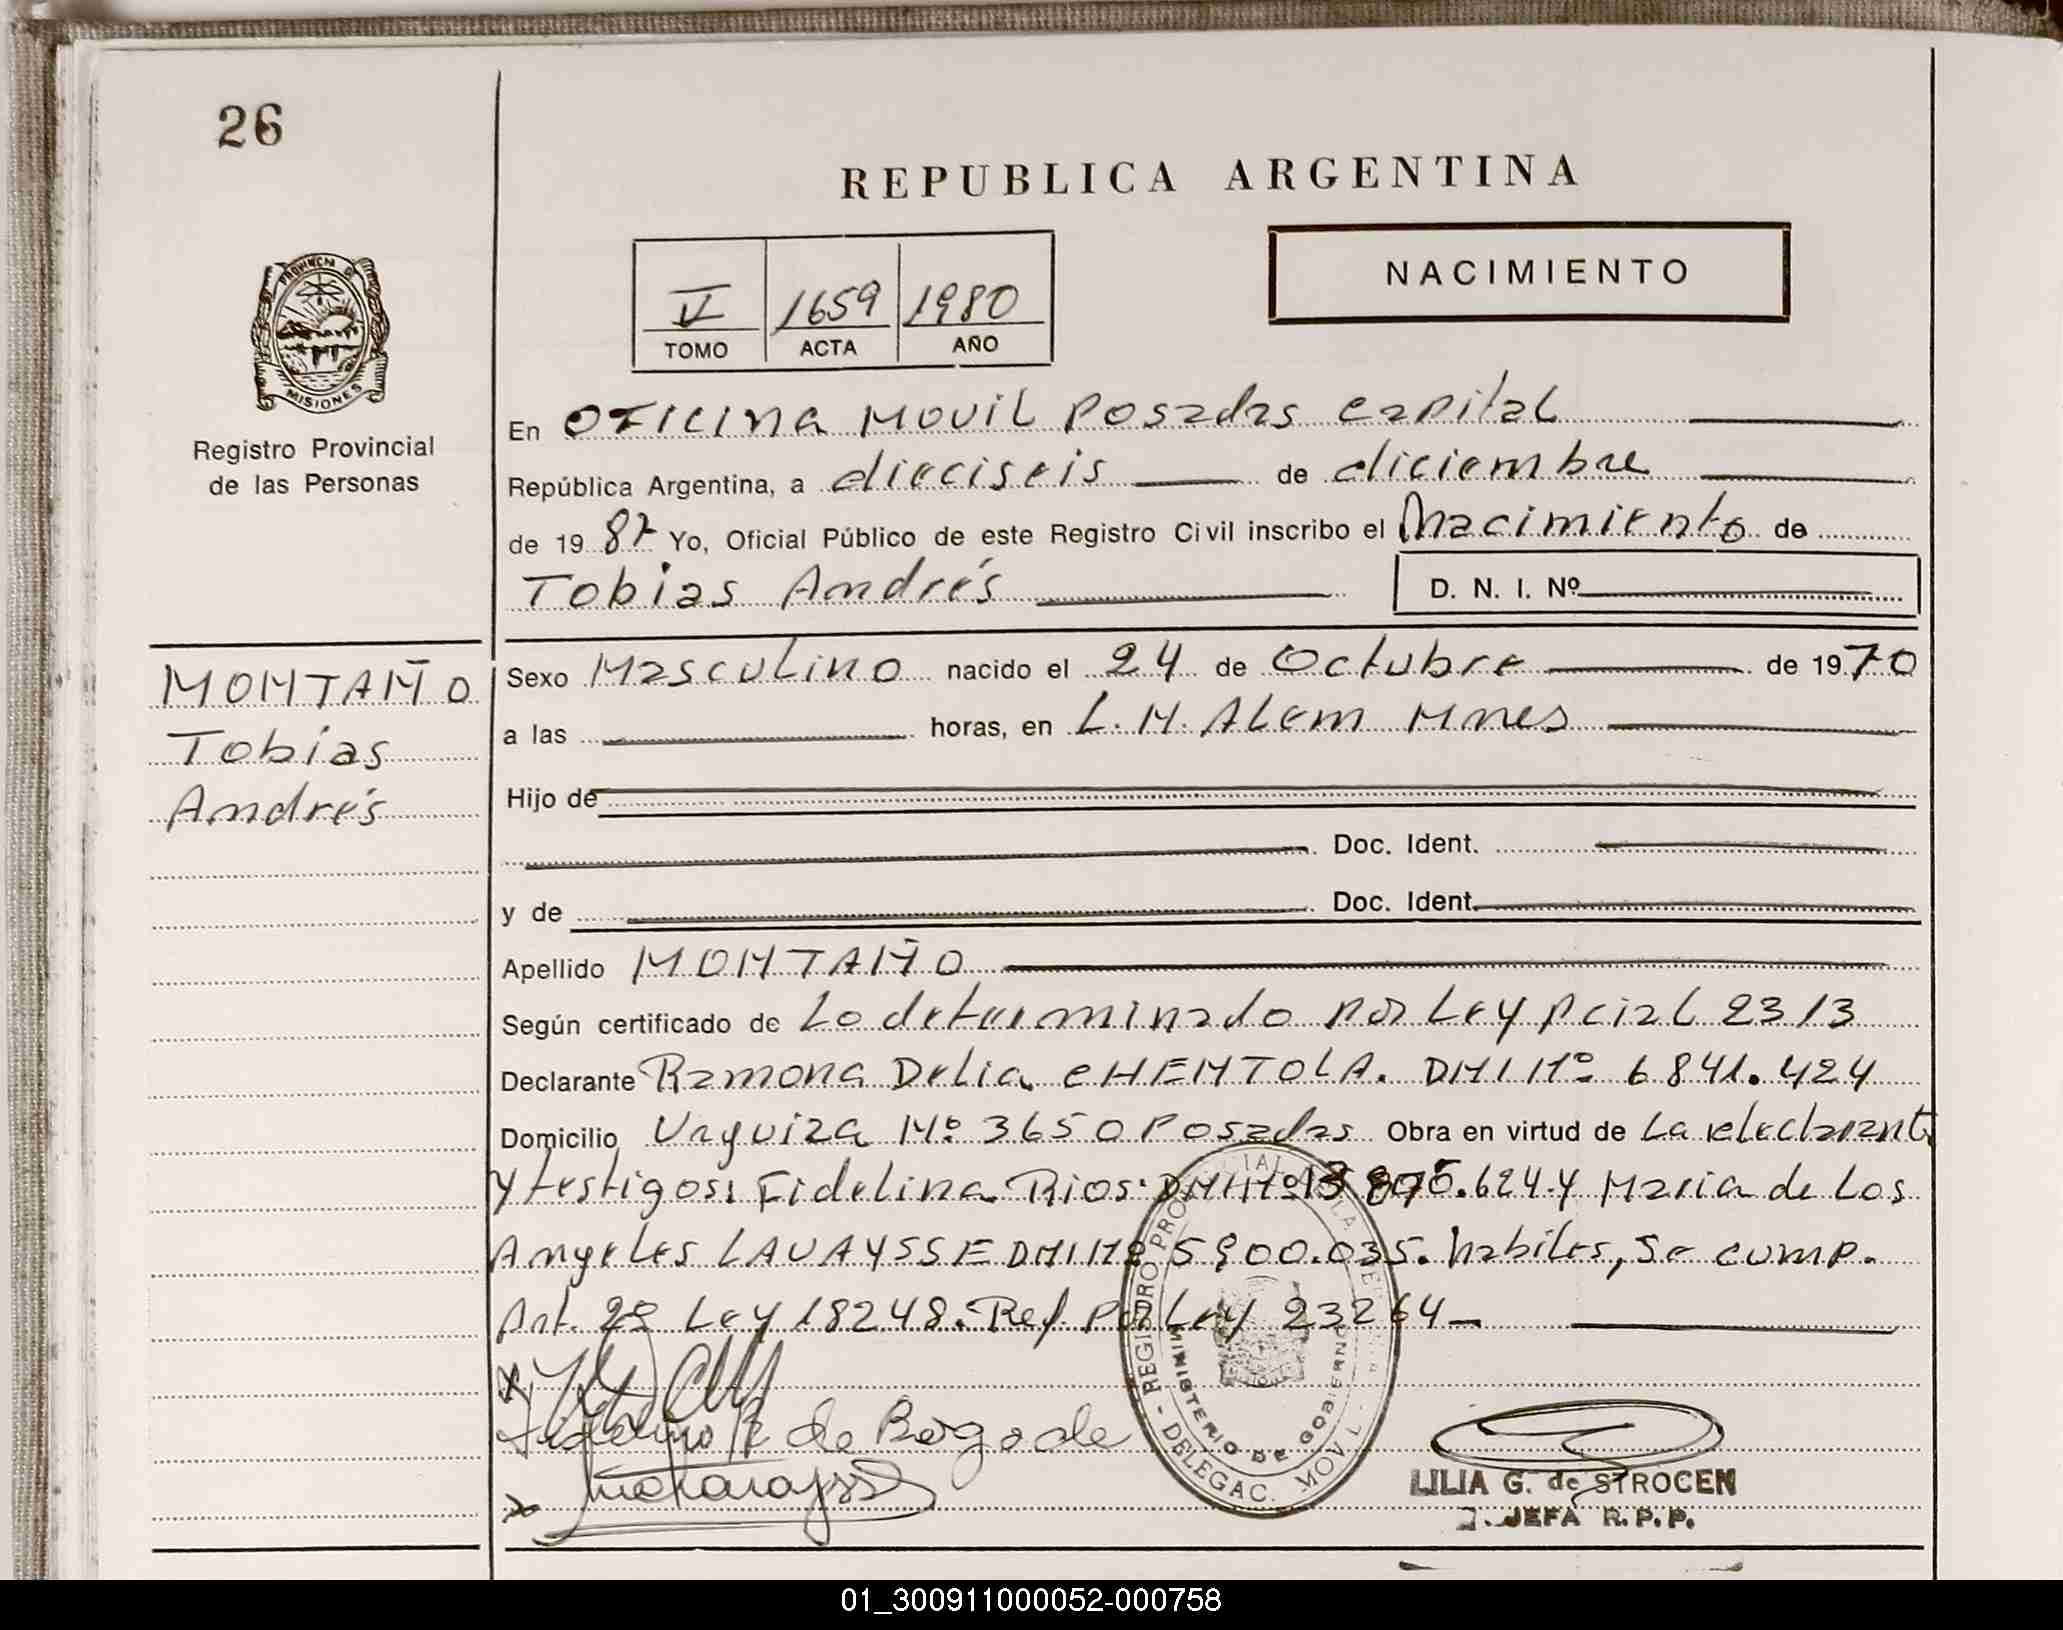 26
REPUBLICA ARGENTINA
NACIMIENTO
V 1659 1980
TOMO ACTA AÑO
PROVINCIA DE
MISIONES
Registro Provincial
de las Personas
En OFICINA MOVIL Posadas capital
República Argentina, a dieciseis de diciembre
de 1987 Yo, Oficial Público de este Registro Civil inscribo el Nacimiento de
Tobias Andrés D. N. I. Nº
MONTAÑO
Tobias
Andrés
Sexo Masculino nacido el 24 de Octubre de 1970
a las horas, en L. N. Alem Mnes
Hijo de
Doc. Ident.
y de Doc. Ident.
Apellido MONTAÑO
Según certificado de Lo determinado por Ley pcial 2313
Declarante Ramona Delia CHENTOLA. DNI Nº 6841.424
Domicilio Urquiza Nº 3650 Posadas Obra en virtud de La declarante
y testigos: Fidelina Rios DNI Nº 13 .624 y Maria de Los
Angeles LAVAYSSE DNI Nº 5900.035. habiles, se cump.
Art. 2º Ley 18248. Ref. por Ley 23264
de Bogado
REGISTRO PROVINCIAL
MINISTERIO DE GOBIERNO
- DELEGAC. MOVIL -
LILIA G. de STROCEN
JEFA R.P.P.
01_300911000052-000758